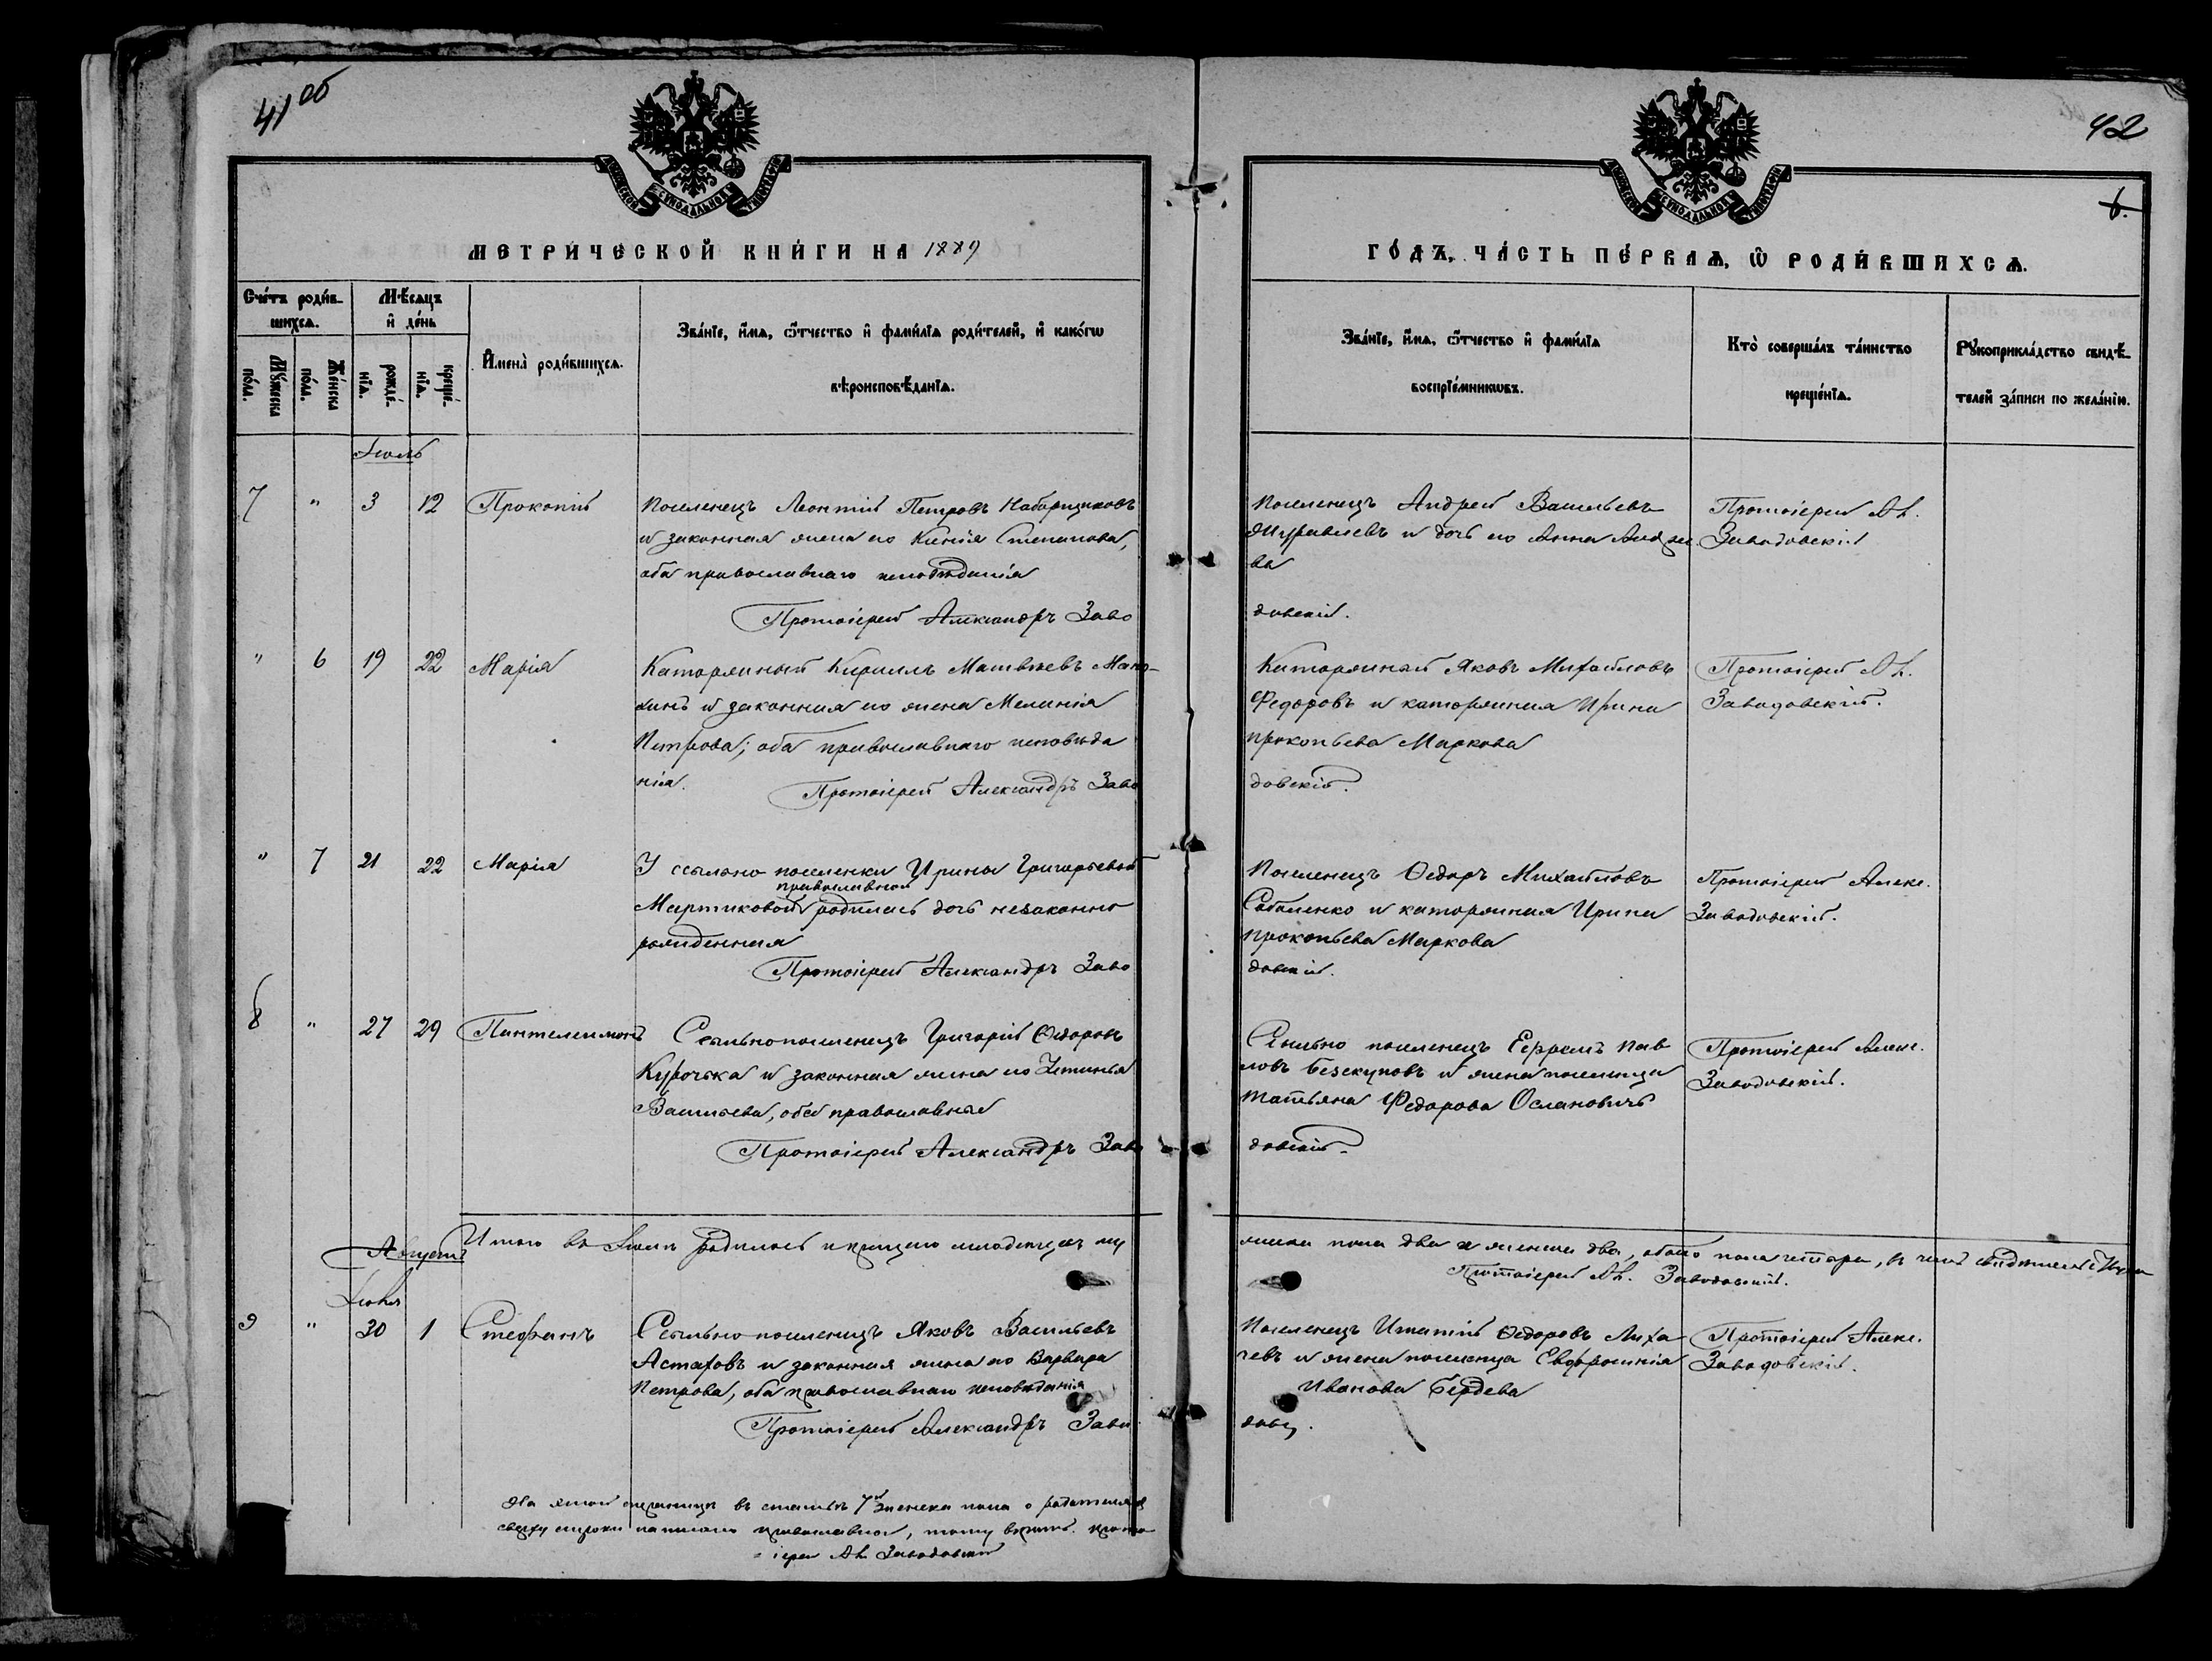 41 об
42
6.
МЕТРИ́ЧЕСКОЙ КНИ́ГИ НА 1889
ГО́ДЪ, ЧА́СТЬ ПЕ́РВАѦ, Ѡ҆ РОДИ́ВШИХСѦ.
Сче́тъ роди́в-
шихсѧ.
Мѣ́сѧцъ
и҆ де́нь
Мꙋ́жеска
по́ла.
Же́нска
по́ла.
рожде́-
нїѧ.
креще́-
нїѧ.
И҆мена̀ роди́вшихсѧ.
Зва́нїе, и҆́мѧ, ѻ҆́тчество и҆ фами́лїѧ роди́телей, и҆ како́гѡ
вѣроисповѣ́данїѧ.
Зва́нїе, и҆́мѧ, ѻ҆́тчество и҆ фами́лїѧ
воспрїе́мникѡвъ.
Кто̀ соверша́лъ та́инство
креще́нїѧ.
Рꙋкоприкла́дство свидѣ́-
телей за́писи по жела́нїю.
Іюль
7 " 3 12 Прокопій
Поселенецъ Леонтій Петровъ Наборщиковъ
и законная жена его Ксенія Степанова,
оба православнаго исповѣданія
Протоіерей Александръ Заво
Поселенецъ Андрей Васильевъ
Журавлевъ и дочь его Анна Андрее
ва
довскій.
Протоіерей Ал.
Заводовскій
" 6 19 22 Марія
Каторжный Кириллъ Матвѣевъ Мано-
хинъ и законная его жена Меланія
Петрова; оба православнаго исповѣда
нія.
Протоіерей Александръ Заво
Каторжный Яковъ Михайловъ
Федоровъ и каторжная Ирина
Прокопьева Маркова
довскій.
Протоіерей Ал.
Заводовскій.
" 7 21 22 Марія
У ссыльно поселенки Ирины Григорьевой
православной
Мартиковой родилась дочь незаконно
рожденная
Протоіерей Александръ Заво
Поселенецъ Ѳедоръ Михайловъ
Соболенко и каторжная Ирина
Прокопьева Маркова
довскій.
Протоіерей Алекс.
Заводовскій.
8 " 27 29 Пантелеимонъ
Ссыльнопоселенецъ Григорій Ѳедоровъ
Курочка и законная жена его Устинья
Васильева, оба православные
Протоіерей Александръ Заво
Ссыльно поселенецъ Ефремъ Пав
ловъ Безскуповъ и жена поселенца
Татьяна Федорова Осланович
довскій.
Протоіерей Алекс.
Заводовскій.
Итого въ Іюлѣ родилось и крещено младенцевъ му
жеска пола два и женска два, обоего пола четыре, въ чемъ свидѣтельствуемъ
Протоіерей Ал. Заводовскій.
Августъ
Іюля
9 " 30 1 Стефанъ
Ссыльно поселенецъ Яковъ Васильевъ
Астаховъ и законная жена его Варвара
Петрова, оба православнаго исповѣданія
Протоіерей Александръ Заво
Поселенецъ Игнатій Ѳедоровъ Лиха
чевъ и жена поселенца Евфросинія
Иванова Бердева
довс.
Протоіерей Алекс.
Заводовскій.
На этой страницѣ въ статьѣ 7й женска пола о родителяхъ
сверху строки написано православной, тому вѣрить. прото
іерей Ал. Заводовскій